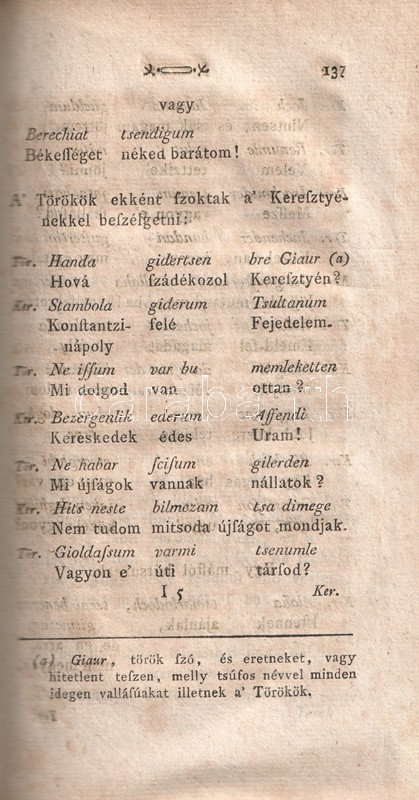 137
vagy
Berechiat tsendigum
Békeſſéget néked barátom!
A' Törökök ekként ſzoktak a' Kereſztyé-
nekkel beſzéſgetni:
Tör. Handa gidertsen bre Giaur (a)
Hová ſzádékozol Kereſztyén?
Ker. Stambola giderum Tsultanúm
Konſtantzi- felé Fejedelem.
nápoly
Tör. Ne iſſum var bu memleketten
Mi dolgod van ottan?
Ker. Bezergenlik ederum Affendi
Kereskedek édes Uram!
Tör. Ne habar ſciſum gilerden
Mi újſágok vannak nállatok?
Ker. Hits neste bilmezam tsa dimege
Nem tudom mitsoda újſágot mondjak.
Tör. Gioldaſsum varmi tsenumle
Vagyon e' úti társod?
I 5 Ker.
(a) Giaur, török ſzó, és eretneket, vagy
hitetlent teſzen, melly tsúfos névvel minden
idegen valláſúakat illetnek a' Törökök.